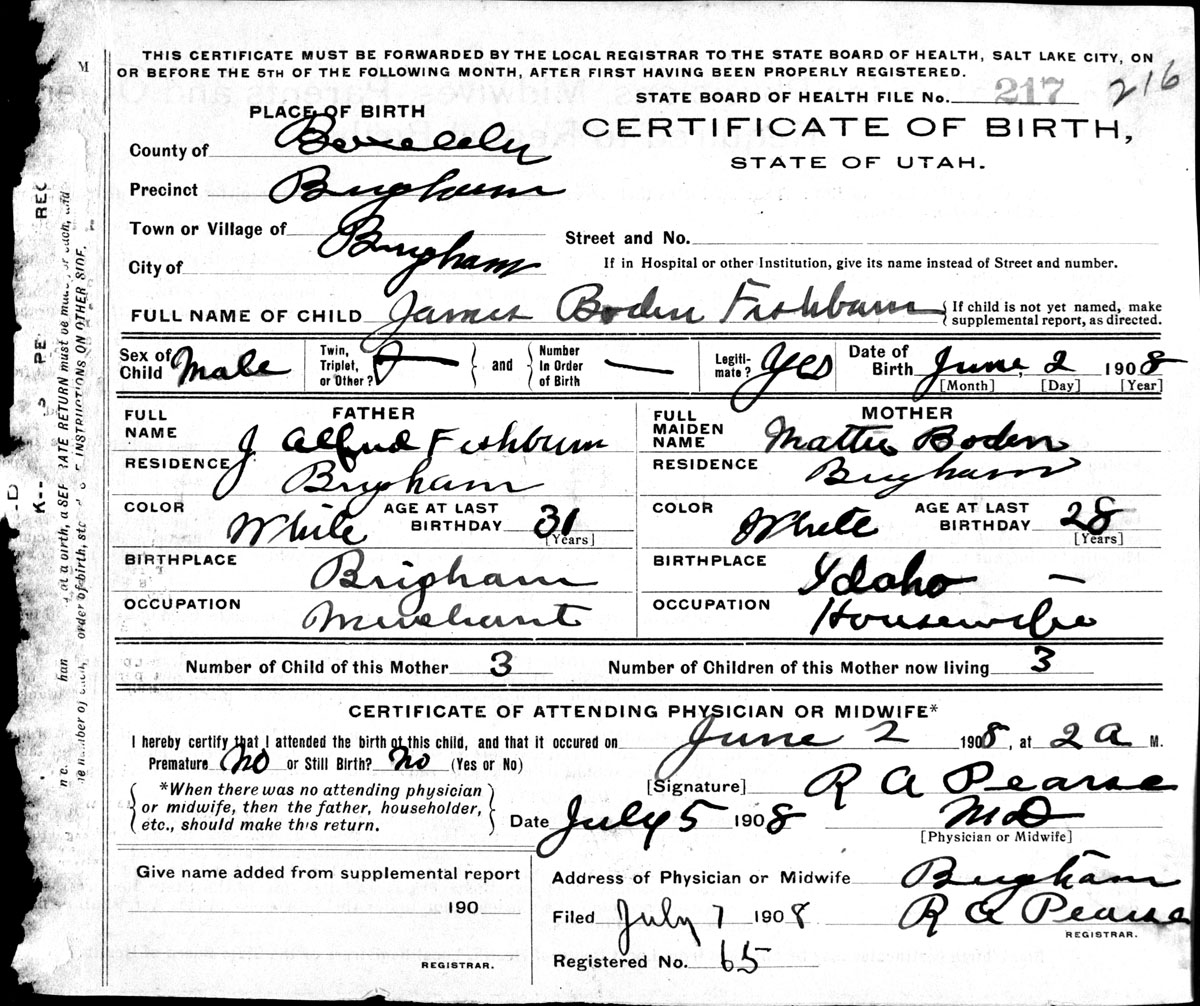 THIS CERTIFICATE MUST BE FORWARDED BY THE LOCAL REGISTRAR TO THE STATE BOARD OF HEALTH, SALT LAKE CITY, ON
OR BEFORE THE 5TH OF THE FOLLOWING MONTH, AFTER FIRST HAVING BEEN PROPERLY REGISTERED.
STATE BOARD OF HEALTH FILE No. 217 216
PLACE OF BIRTH
CERTIFICATE OF BIRTH,
STATE OF UTAH.
County of Boxelder
Precinct Brigham
Town or Village of
Street and No.
City of Brigham
If in Hospital or other Institution, give its name instead of Street and number.
FULL NAME OF CHILD James Boden Fishburn { If child is not yet named, make supplemental report, as directed.
Sex of Child Male Twin, Triplet, or Other? } and { Number In Order of Birth — Legiti-mate? Yes Date of Birth June, 2 1908
[Month] [Day] [Year]
FATHER
MOTHER
FULL NAME J Alfred Fishburn
FULL MAIDEN NAME Mattie Boden
RESIDENCE Brigham
RESIDENCE Brigham
COLOR White AGE AT LAST BIRTHDAY 31 [Years]
COLOR White AGE AT LAST BIRTHDAY 28 [Years]
BIRTHPLACE Brigham
BIRTHPLACE Idaho —
OCCUPATION Merchant
OCCUPATION Housewife
Number of Child of this Mother 3 Number of Children of this Mother now living 3
CERTIFICATE OF ATTENDING PHYSICIAN OR MIDWIFE*
I hereby certify that I attended the birth of this child, and that it occured on June 2 1908, at 2 a M.
Premature No or Still Birth? No (Yes or No)
[Signature] R A Pearse
{ *When there was no attending physician
or midwife, then the father, householder,
etc., should make this return. }
Date July 5 1908 MD
[Physician or Midwife]
Give name added from supplemental report
190
REGISTRAR.
Address of Physician or Midwife Brigham
Filed July 7 1908 R A Pearse
REGISTRAR.
Registered No. 65